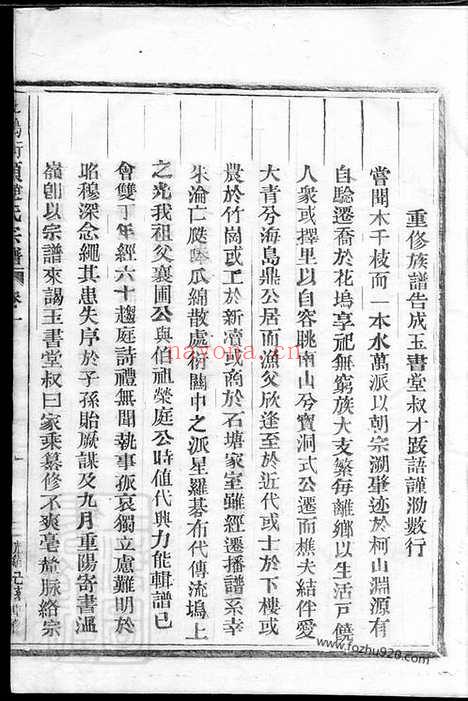 重修族譜告成玉書堂叔才跋語謹泐數行
嘗聞木千枝而一本水萬派以朝宗溯肇迹於柯山淵源有
自騐遷喬於花塢享祀無窮族大支繁每離鄉以生活戸饒
人衆或擇里以自容眺南山兮寶洞式公遷而樵夫結伴愛
大青兮海島鼎公居而漁父欣逢至於近代或士於下樓或
農於竹崗或工於新瀆或商於石塘家室雖經遷播譜系幸
未淪亡瓞瓜綿散處衍關中之派星羅碁布代傳流塢上
之光我祖父襄圃公與伯祖榮庭公時値代興力能輯譜已
會雙丁年經六十趨庭詩禮無聞執事孤哀獨立慮難明於
昭穆深念繩其患失序於子孫貽厥謀及九月重陽寄書溫
嶺卽以宗譜來謁玉書堂叔曰家乘纂修不爽毫釐脈絡宗
氏宗譜 卷一
nayona.cn
www.fozhu920.com